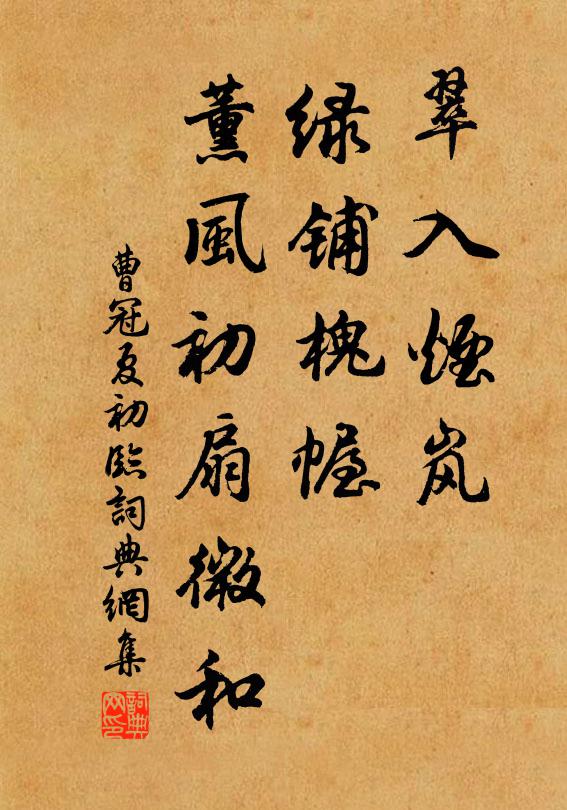 翠入煙岚
绿铺槐幄
薰風初扇微和
曹冠夏初臨詞典網集
詞典网印